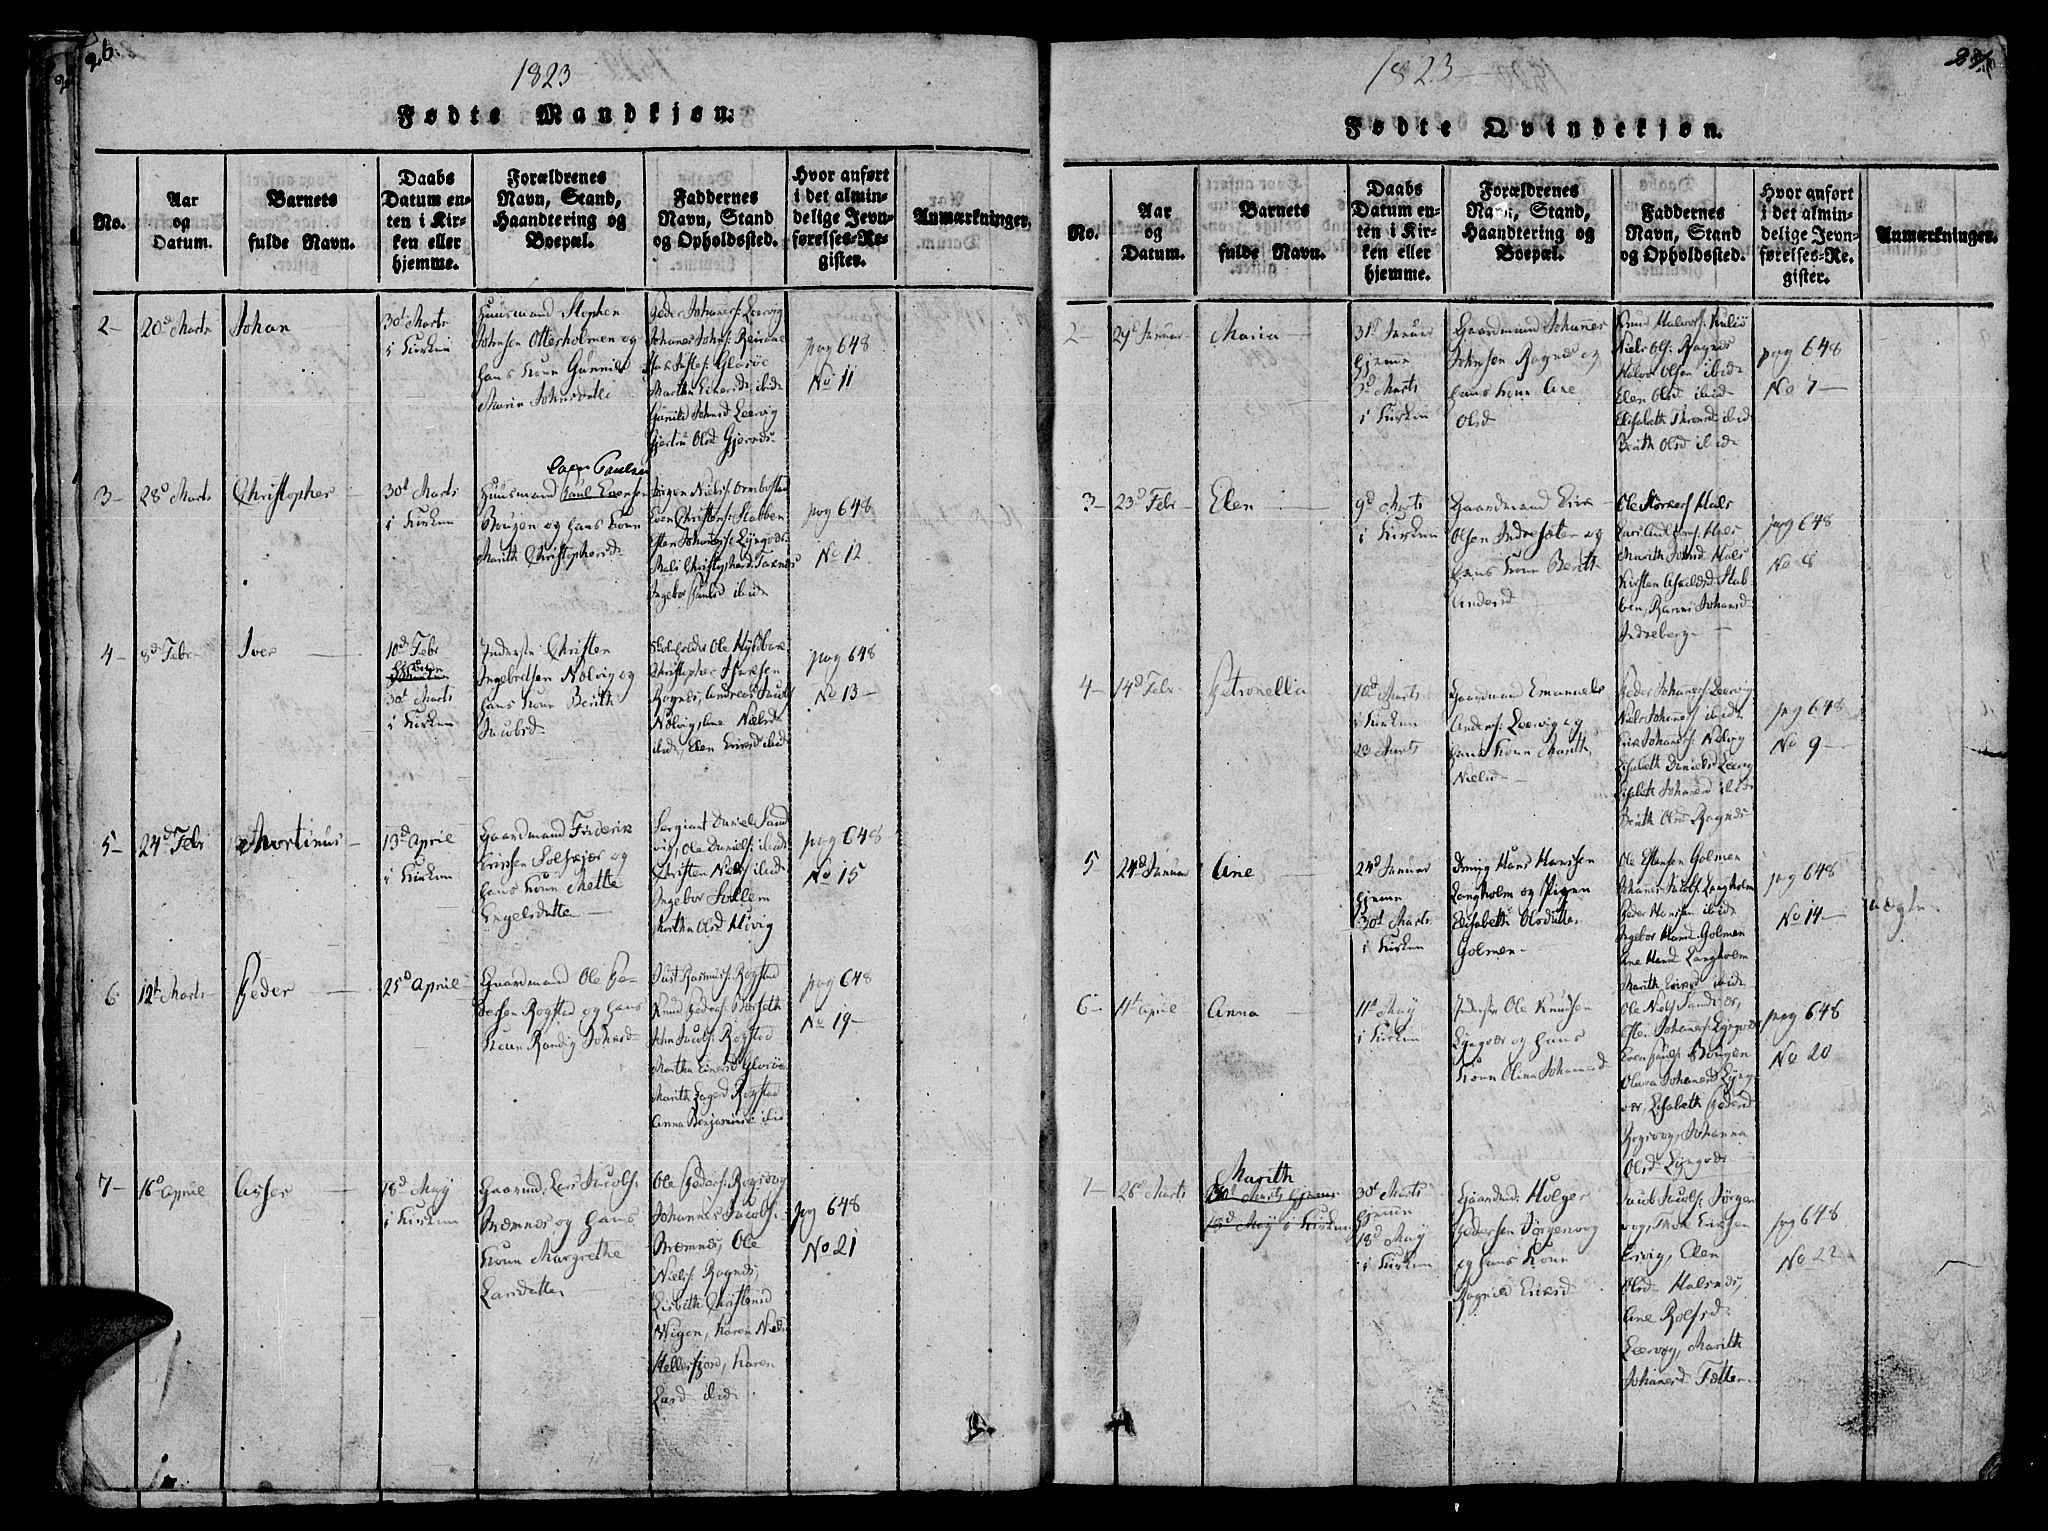 26.
1823
Fødte Mandkjøn:
No.
Aar
og
Datum.
Barnets
fulde Navn.
Daabs
Datum en-
ten i Kir-
ken eller
hjemme.
Forældrenes
Navn, Stand,
Haandtering og
Boepæl.
Faddernes
Navn, Stand
og Opholdssted.
Hvor anført
i det almin-
delige Jevn-
førelses-Re-
gister.
Anmærkninger.
2-
20d Marts
Johan
30t Marts
i Kirken
Huusmand Stephen
Johnsen Otterholmen og
hans Kone Gunnild
Maria Johnsdatte
Peder Johanes: Leervig
Johanes Johns:
Marthe Einersd ibid
Gunild Johnsd Leervig
Gjertru Olsd
pag 648
No 11
3-
28d Marts
Christopher
30t Marts
i Kirken
Paulsen
Huusmand Paul Evensen
Bougen og hans Kone
Marith Christophersd
Jørgen Niels:
Even Christens: Stabben
Esten Johanes: Lyngvær
Mali Christophersd
Ingebor Paulsd ibid
pag 648
No 12
4-
8d Febr
Iver
10d Febr
30d Marts
i Kirken
Inderste Christen
Ingebretsen Nolvig og
hans Kone Berith
Jacobsd
Skoleholder Ole
Christopher
Rognes, Andreas Jacobs
Nolvig, Ane Nielsd
ibid, Elen Ericksd ibid
pag 648
No 13-
5-
24d Febr
Mortinus
13d April
i Kirken
Gaardmand Friderik
Ericksen Solskjær og
hans Kone Mette
Engelsdatter
Sergiant Daniel Sand
vig, Ole Daniels: ibid
Christen Niels ibid
Ingebor
Martha Olsd
pag 648
No 15
6
12t Marts
Peder
25d April
Gaardmand Ole Pe-
dersen Rogstad og hans
Kone Randig Johnsd
Just Rasmus: Rogstad
Knud Peders:
John Jacobs: Rogstad
Martha Einersd Glosvog
Marith Lagesd Rogstad
Anna Benjamins ibid
pag 648
No 19
7-
16d April
Asser
18d May
i Kirken
Gaarmd. Lars Jacobs:
Bremnes og hans
Kone Margrethe
Larsdatter
Ole Peders: Rogsvog
Johannes Jacobs:
Bremnes, Ole
Niels: Rognes,
Lisbeth Christensd
Wigen, Karen Nielsd
Hellesfjord, Karen
Larsd ibid
pag 648
No 21
1823
Fødte Qvindekjøn.
No.
Aar
og
Datum.
Barnets
fulde Navn.
Daabs
Datum en-
ten i Kir-
ken eller
hjemme.
Forældrenes
Navn, Stand,
Haandtering og
Boepæl.
Faddernes
Navn, Stand
og Opholdssted.
Hvor anført
i det almin-
delige Jevn-
førelses-Re-
gister.
Anmærkninger.
2-
29d Januar
Maria
31d Januar
hjemme
3d Marts
i Kirken
Gaardmand Johannes
Johnsen Rognes og
hans Kone Ane
Olsd
Knud Halvors:
Niels Ols: Rognes
Halvor Olsen ibid
Elen Olsd ibid
Elisabeth ibid
Berith Olsd ibid
pag 648
No 7
3-
23d Febr
Elen
9d Marts
i Kirken
Gaardmand Erik
Olsen Indresæter og
hans Kone Berith
Andersd
Ole Størkers Hals
Hals
Marith Johnsd Hals
Kirsten Stab-
ben, Johansd
Indreberg
pag 648
No 8
4-
14d Febr
Petronella
10d Marts
i Kirken
23 Marts
Gaardmand Emanuel
Anders: Leervig og
hans Kone Marith
Nielsd
Peder Johanes: Leervig
Niels Johanes ibid
Erik Johanes: Nolvig
Elisabeth Danielsd Leervig
Elisabeth Johanesd ibid
Berith Olsd Rognes
pag 648
No 9
5
24d Januar
Ane
24d Januar
hjemme
30t Marts
i Kirken
Dreng Hans Hanssen
Langholm og Pigen
Elisabeth Olsdatter
Golmen
Ole Estensen Golmen
Johanes Jacobs: Langholm
Peder Hansen ibid
Ingebor Hansd Golmen
Ane Hansd Langholm
Marith Ericksd ibid
pag 648
No 14
uægte
6-
14t April
Anna
11d May
i Kirken
Inderste Ole Knudsen
Lyngvær og hans
Kone Olina Johannesd
Ole Niels
Esten Johanes: Lyngvær
Even Pauls: Bougen
Olava Johanesd Lyng-
vær, Lisabeth Pedersd
Rogsvog, Johanna
Olsd Lyngvær
pag 648
No 20
7-
26d Marts
Marith
30t Marts hjemme
18d May i Kirken
30t Marts
hjemme
18d May
i Kirken
Gaardmd: Holger
Pedersen Jørgenvog
og hans Kone
Ragnild Ericksd
Jacob Jacobs: Jørgen
vog, Ericksen
Ervig, Elen
Olsd Halsnes,
Ane Rolfsd
Leervog, Marith
Johanesd Tetter
pag 648
No 22